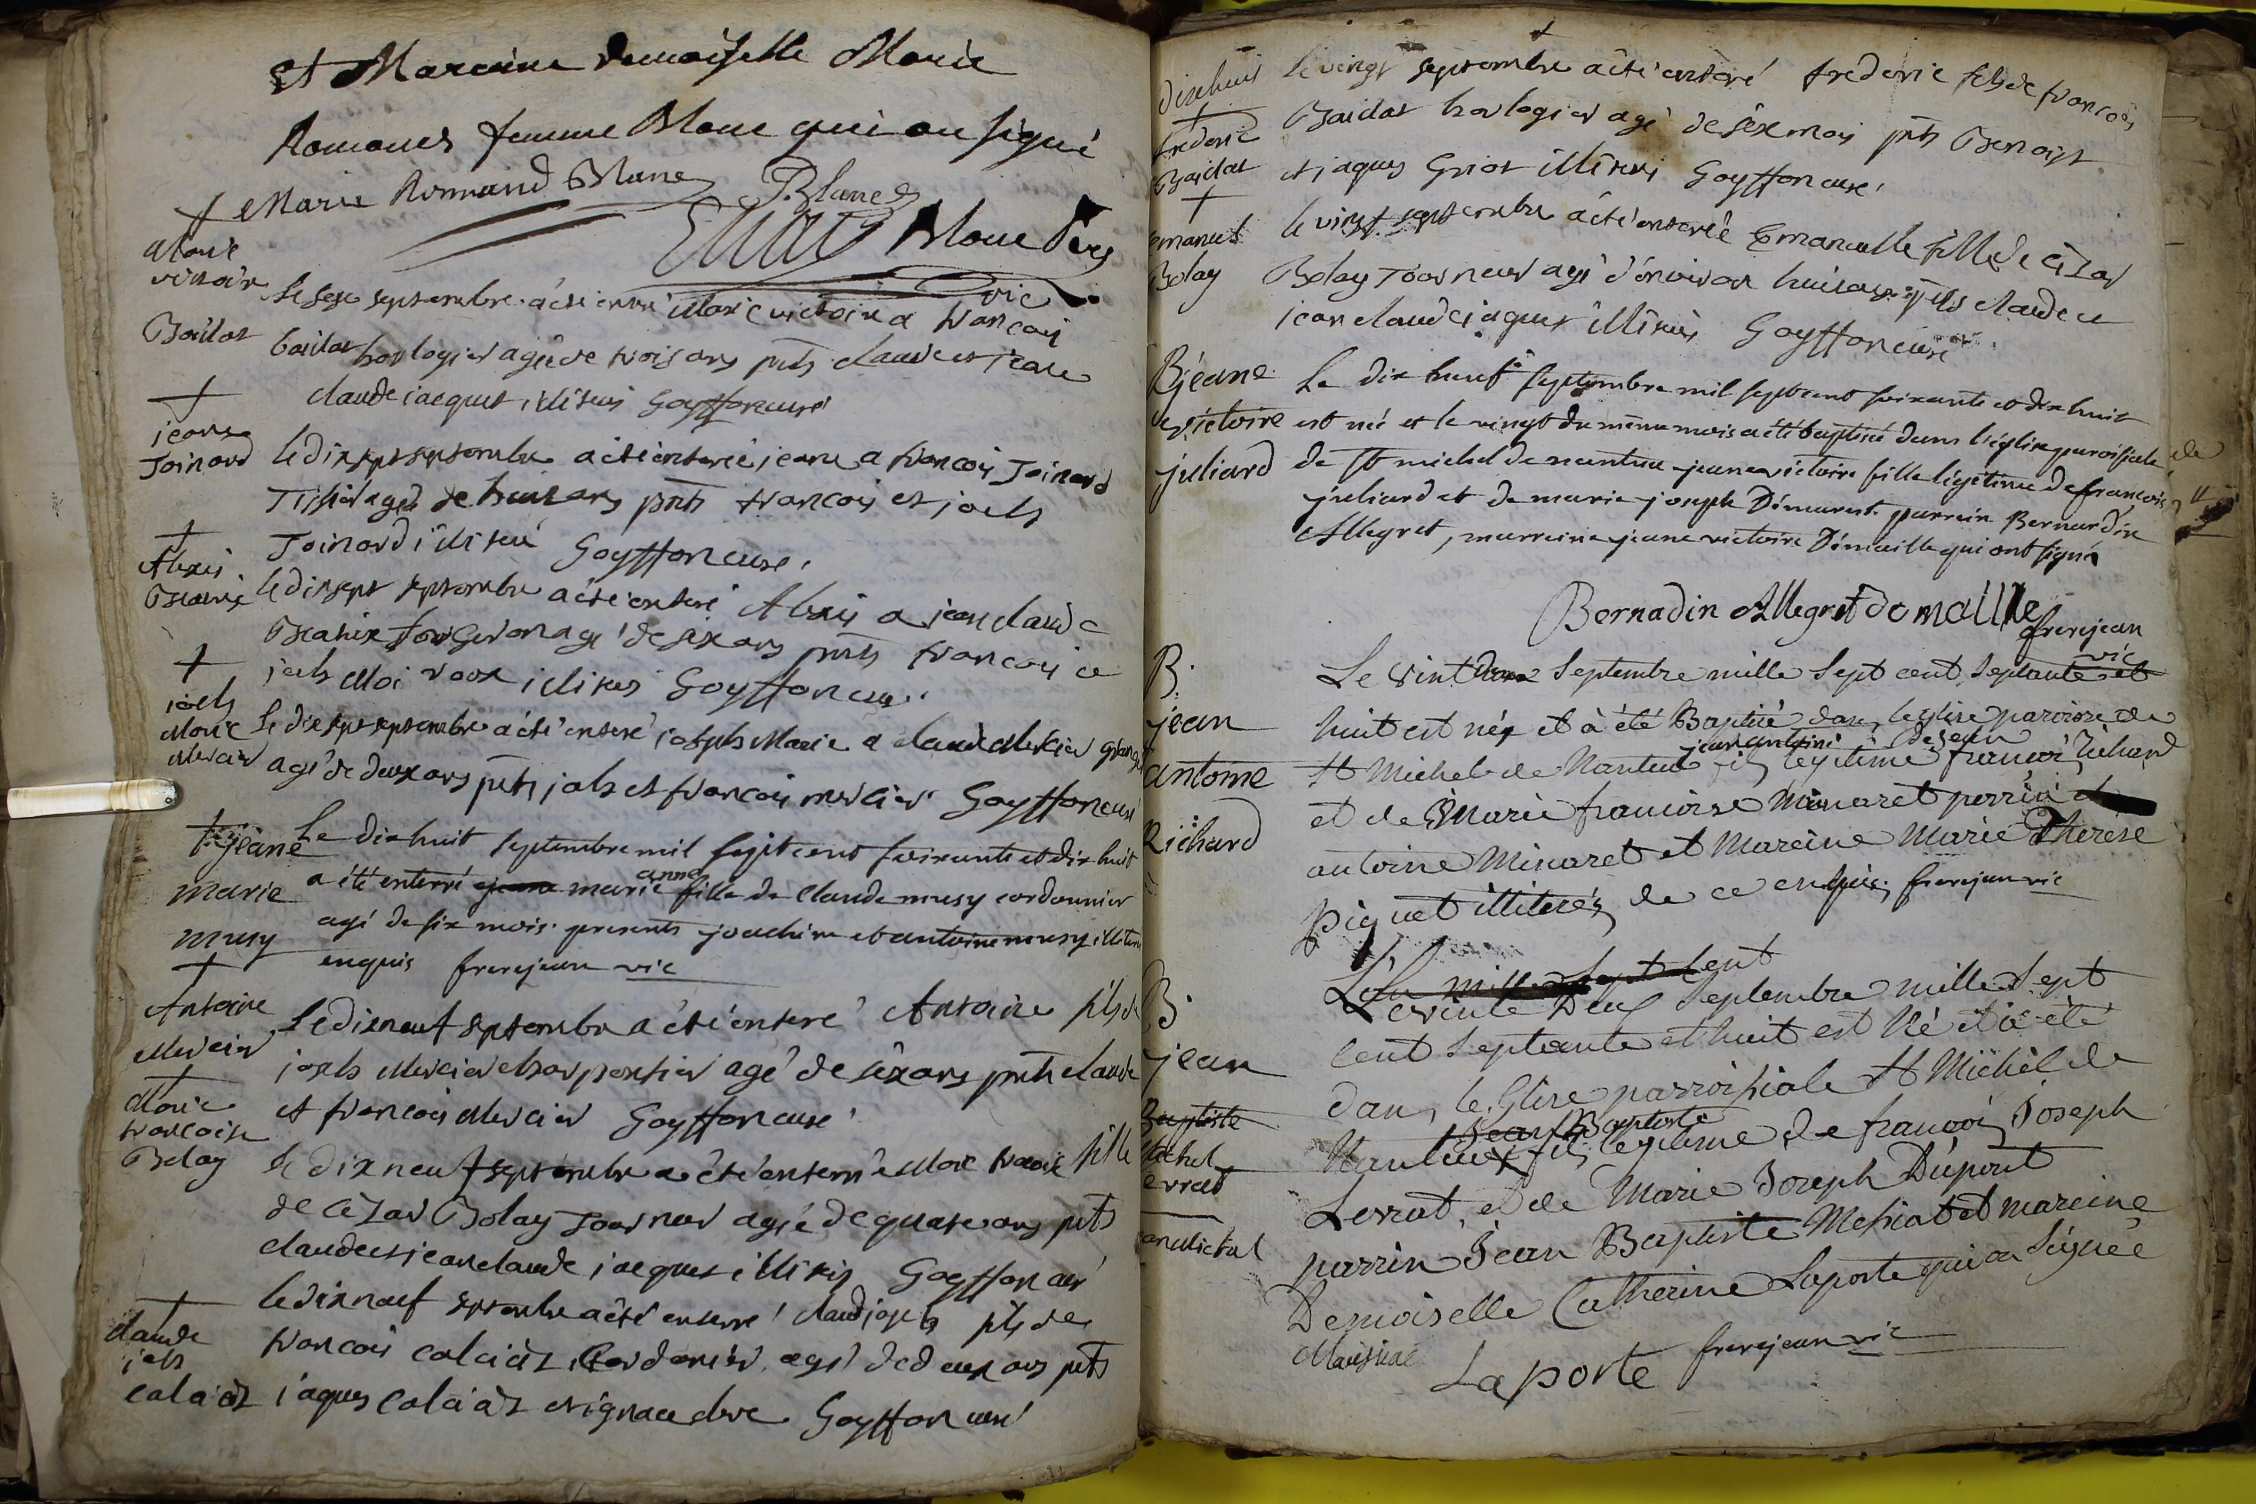 et Mareine demoiselle Marie
Romand femme Blanc qui on signé
Marie Romand Blanc P. Blanc
Blanc
vic
Marie
victoire
Baidat
Le seze septembre a été enteré Marie victoire a francois
baidat horlogier agé de trois ans pnts claude et jean
claude jacquet illiterés Goyffon curé
jeane
Joinard
le dix sept septembre a été enterée jeane a francois Joinard
Tissier agée de huit ans pnts francois et joseh
Joinard illiteré Goyffon curé.
Alexis
le dix sept septembre a été enteré Alexis a jean claude
forgeron agé de six ans pnts francois et
illiterés Goyffon curé.
joseh
Marie
Mercier
Le dix sept septembre a été enteré joseph Marie a claude Mercier
agé de deux ans pnts joseh et francois mercier Goyffon curé
+ jeane
marie
musy
+
Le dix huit septembre mil sept cent soixante et dix huit
a été enterré jeane marie anne fille de Claude musy cordonnier
agé de six mois. presents joachim et antoine musy illiteres
enquis frerejean vic
Antoine
Mercier
Le dix neuf septembre a été enteré Antoine fils de
joseh Mercier charpentier agé de six ans pnts claude
et francois Mercier Goyffon curé
Marie
francoise
Bolay
Le dix neuf septembre a été enterré Marie francoise fille
de Cezar Bolay Tourneur agée de quatre ans pnts
claude et jean claude jacquet illiterés Goyffon curé
claude
joseh
calaiat
le dix neuf septembre a été enterré claud joseph fils de
francois calaiaz Cordonier agé de deux ans pnts
jaques calaiaz Goyffon curé
dixhuit
+
frederic
Baidat
+
Le vingt septembre a été enteré frederic fils de francois
Baidat horlogier agé de six mois pnts Benoist
et jaques illiterés Goyffon curé
Emanuel
Bolay
le vingt septembre a été enterée Emanuelle fille de Cezar
Bolay Tourneur agé d'environ huit pnts claude et
jean claude jaquet illiterés Goyffon curé
B. jeane
victoire
juliard
Le dix huit septembre mil sept cent soixante et dix huit
est né et le vingt du même mois a été baptisé dans l'église paroissiale
de St michel de nantua jeane victoire fille légitime de françois
juliard et de marie joseph Démarest. parrein Bernardin
Allegret, marreine jeane victoire Démaille qui ont signé
Bernadin Allegret Domaille
frerejean
vic
B.
jean
antoine
Richard
Le vint deux Septembre mille Sept cent Septante et
huit est néz et à été Baptisé dans leglise paroisse de
jean antoine de jean
St Michel de Nantua fils legitime francois Richard
et de Marie francoise Minaret perrin et
antoine Minaret et Mareine Marie Therese
piquet illiterés de ce enquis. frerejean vic
L'an mille Sept Cent
B.
jean
Baptiste
Michel
Levrat
Le vinte Deux Septembre mille Sept
Cent Septante et huit est Né et a été
dans leglise parroissiale St Michel de
Jean Baptiste
Nantua fils legitime de francois Joseph
Levrat, et de Marie Joseph Dupont
parrin Jean Baptiste Messiat et mareine
Demoiselle Catherine Laporte qui on Signée
Laporte frerejean vic